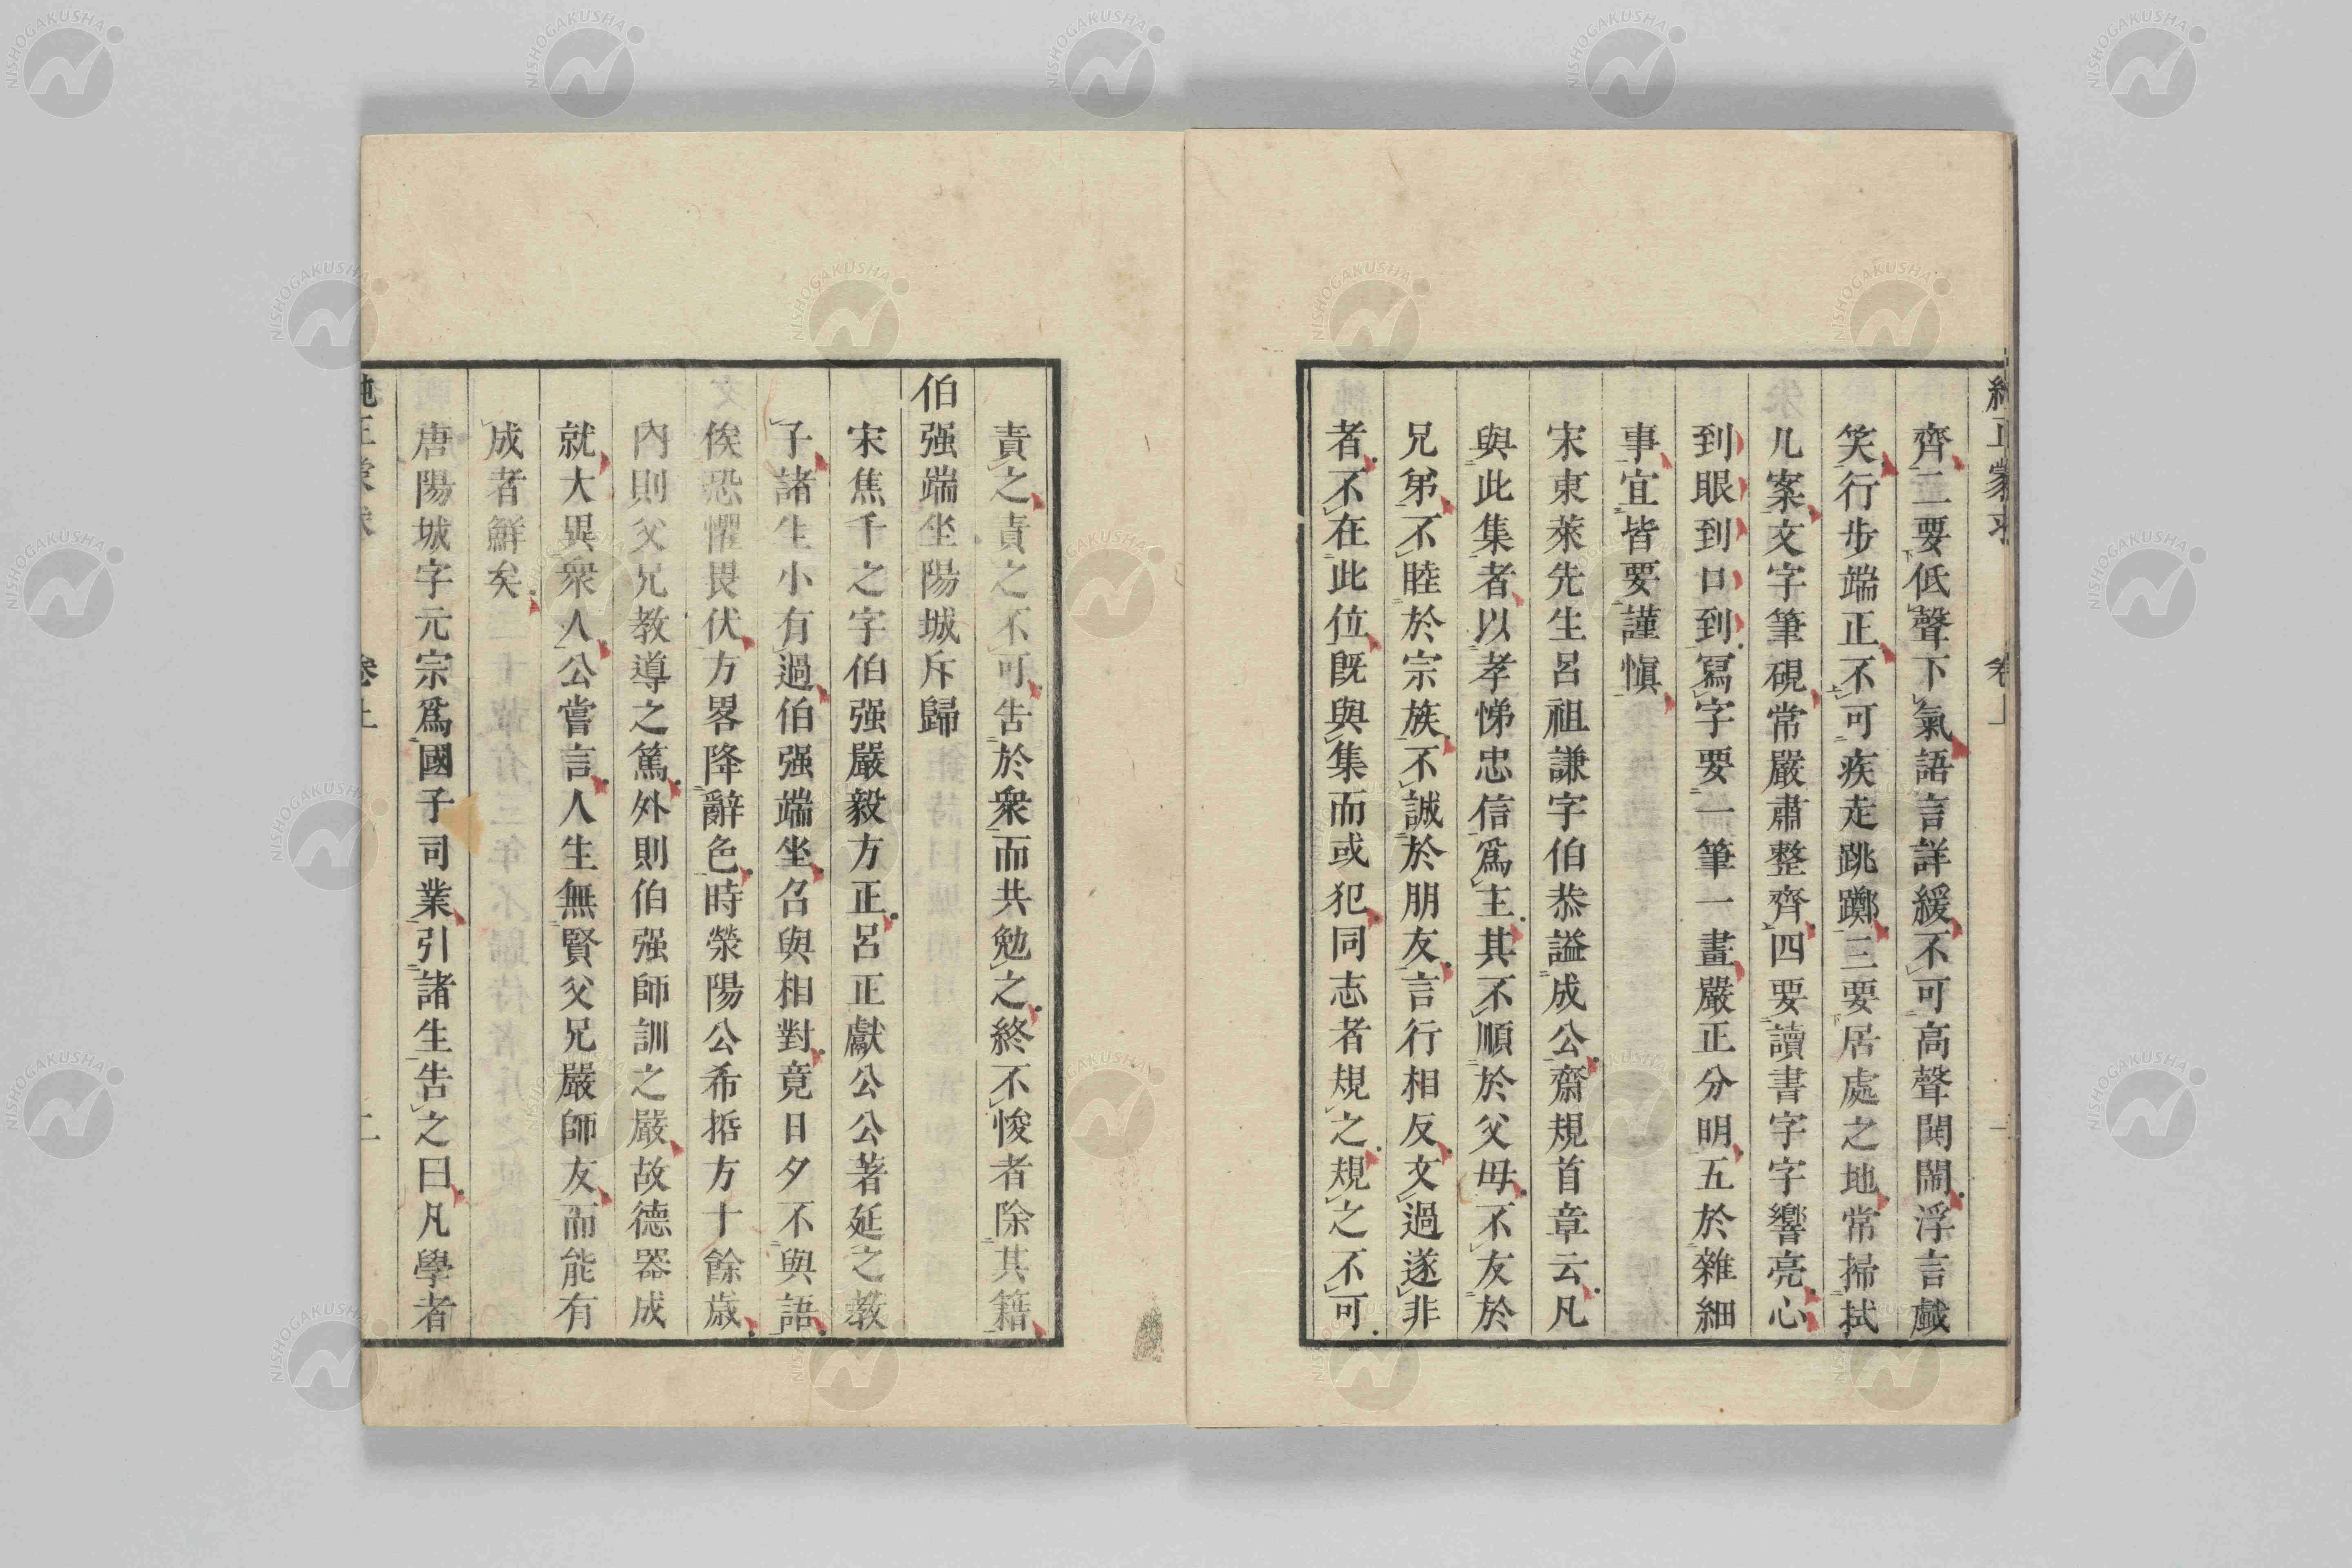 齊二要低聲下氣語言詳緩不可高聲鬨鬧浮言戲
笑行步端正不可疾走跳躑三要居處之地常掃拭
几案文字筆硯常嚴肅整齊四要讀書字字響亮心
到眼到口到寫字要一筆一畫嚴正分明五於雜細
事宜皆要謹愼
宋東萊先生呂祖謙字伯恭謚成公齋規首章云凡
與此集者以孝悌忠信爲主其不順於父母不友於
兄弟不睦於宗族不誠於朋友言行相反文過遂非
者不在此位旣與集而或犯同志者規之規之不可
責之責之不可告於衆而共勉之終不悛者除其籍
伯强端坐陽城斥歸
宋焦千之字伯强嚴毅方正呂正獻公公著延之教
子諸生小有過伯强端坐召與相對竟日夕不與語
俟恐懼畏伏方畧降辭色時滎陽公希哲方十餘歲
內則父兄教導之篤外則伯强師訓之嚴故德器成
就大異衆人公嘗言人生無賢父兄嚴師友而能有
成者鮮矣
唐陽城字元宗爲國子司業引諸生告之曰凡學者
NISHOGAKUSHA